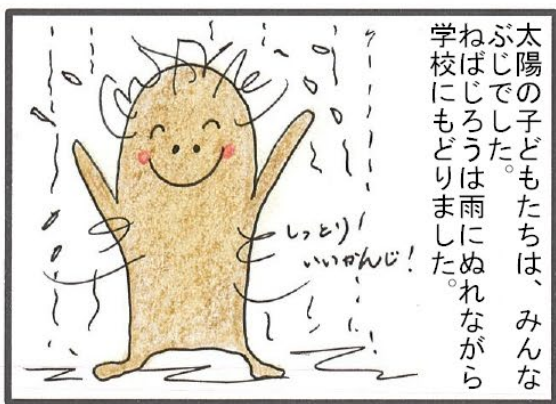 太陽の子どもたちは、みんな
ぶじでした。
ねばじろうは雨にぬれながら
学校にもどりました。
しっとり!
いいかんじ!